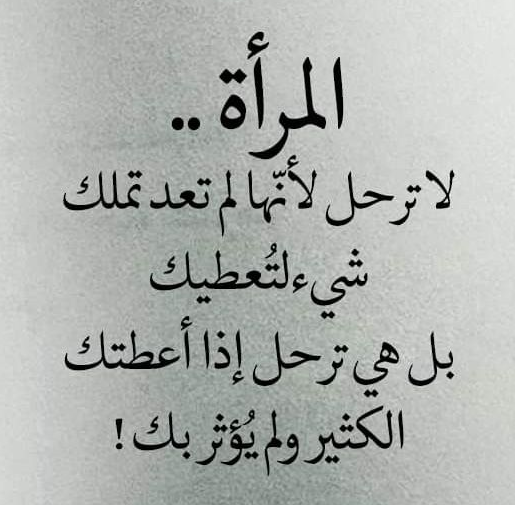 المرأة ..
لا ترحل لأنّها لم تعد تملك
شيء لتُعطيك
بل هي ترحل إذا أعطتك
الكثير ولم يُؤثر بك !